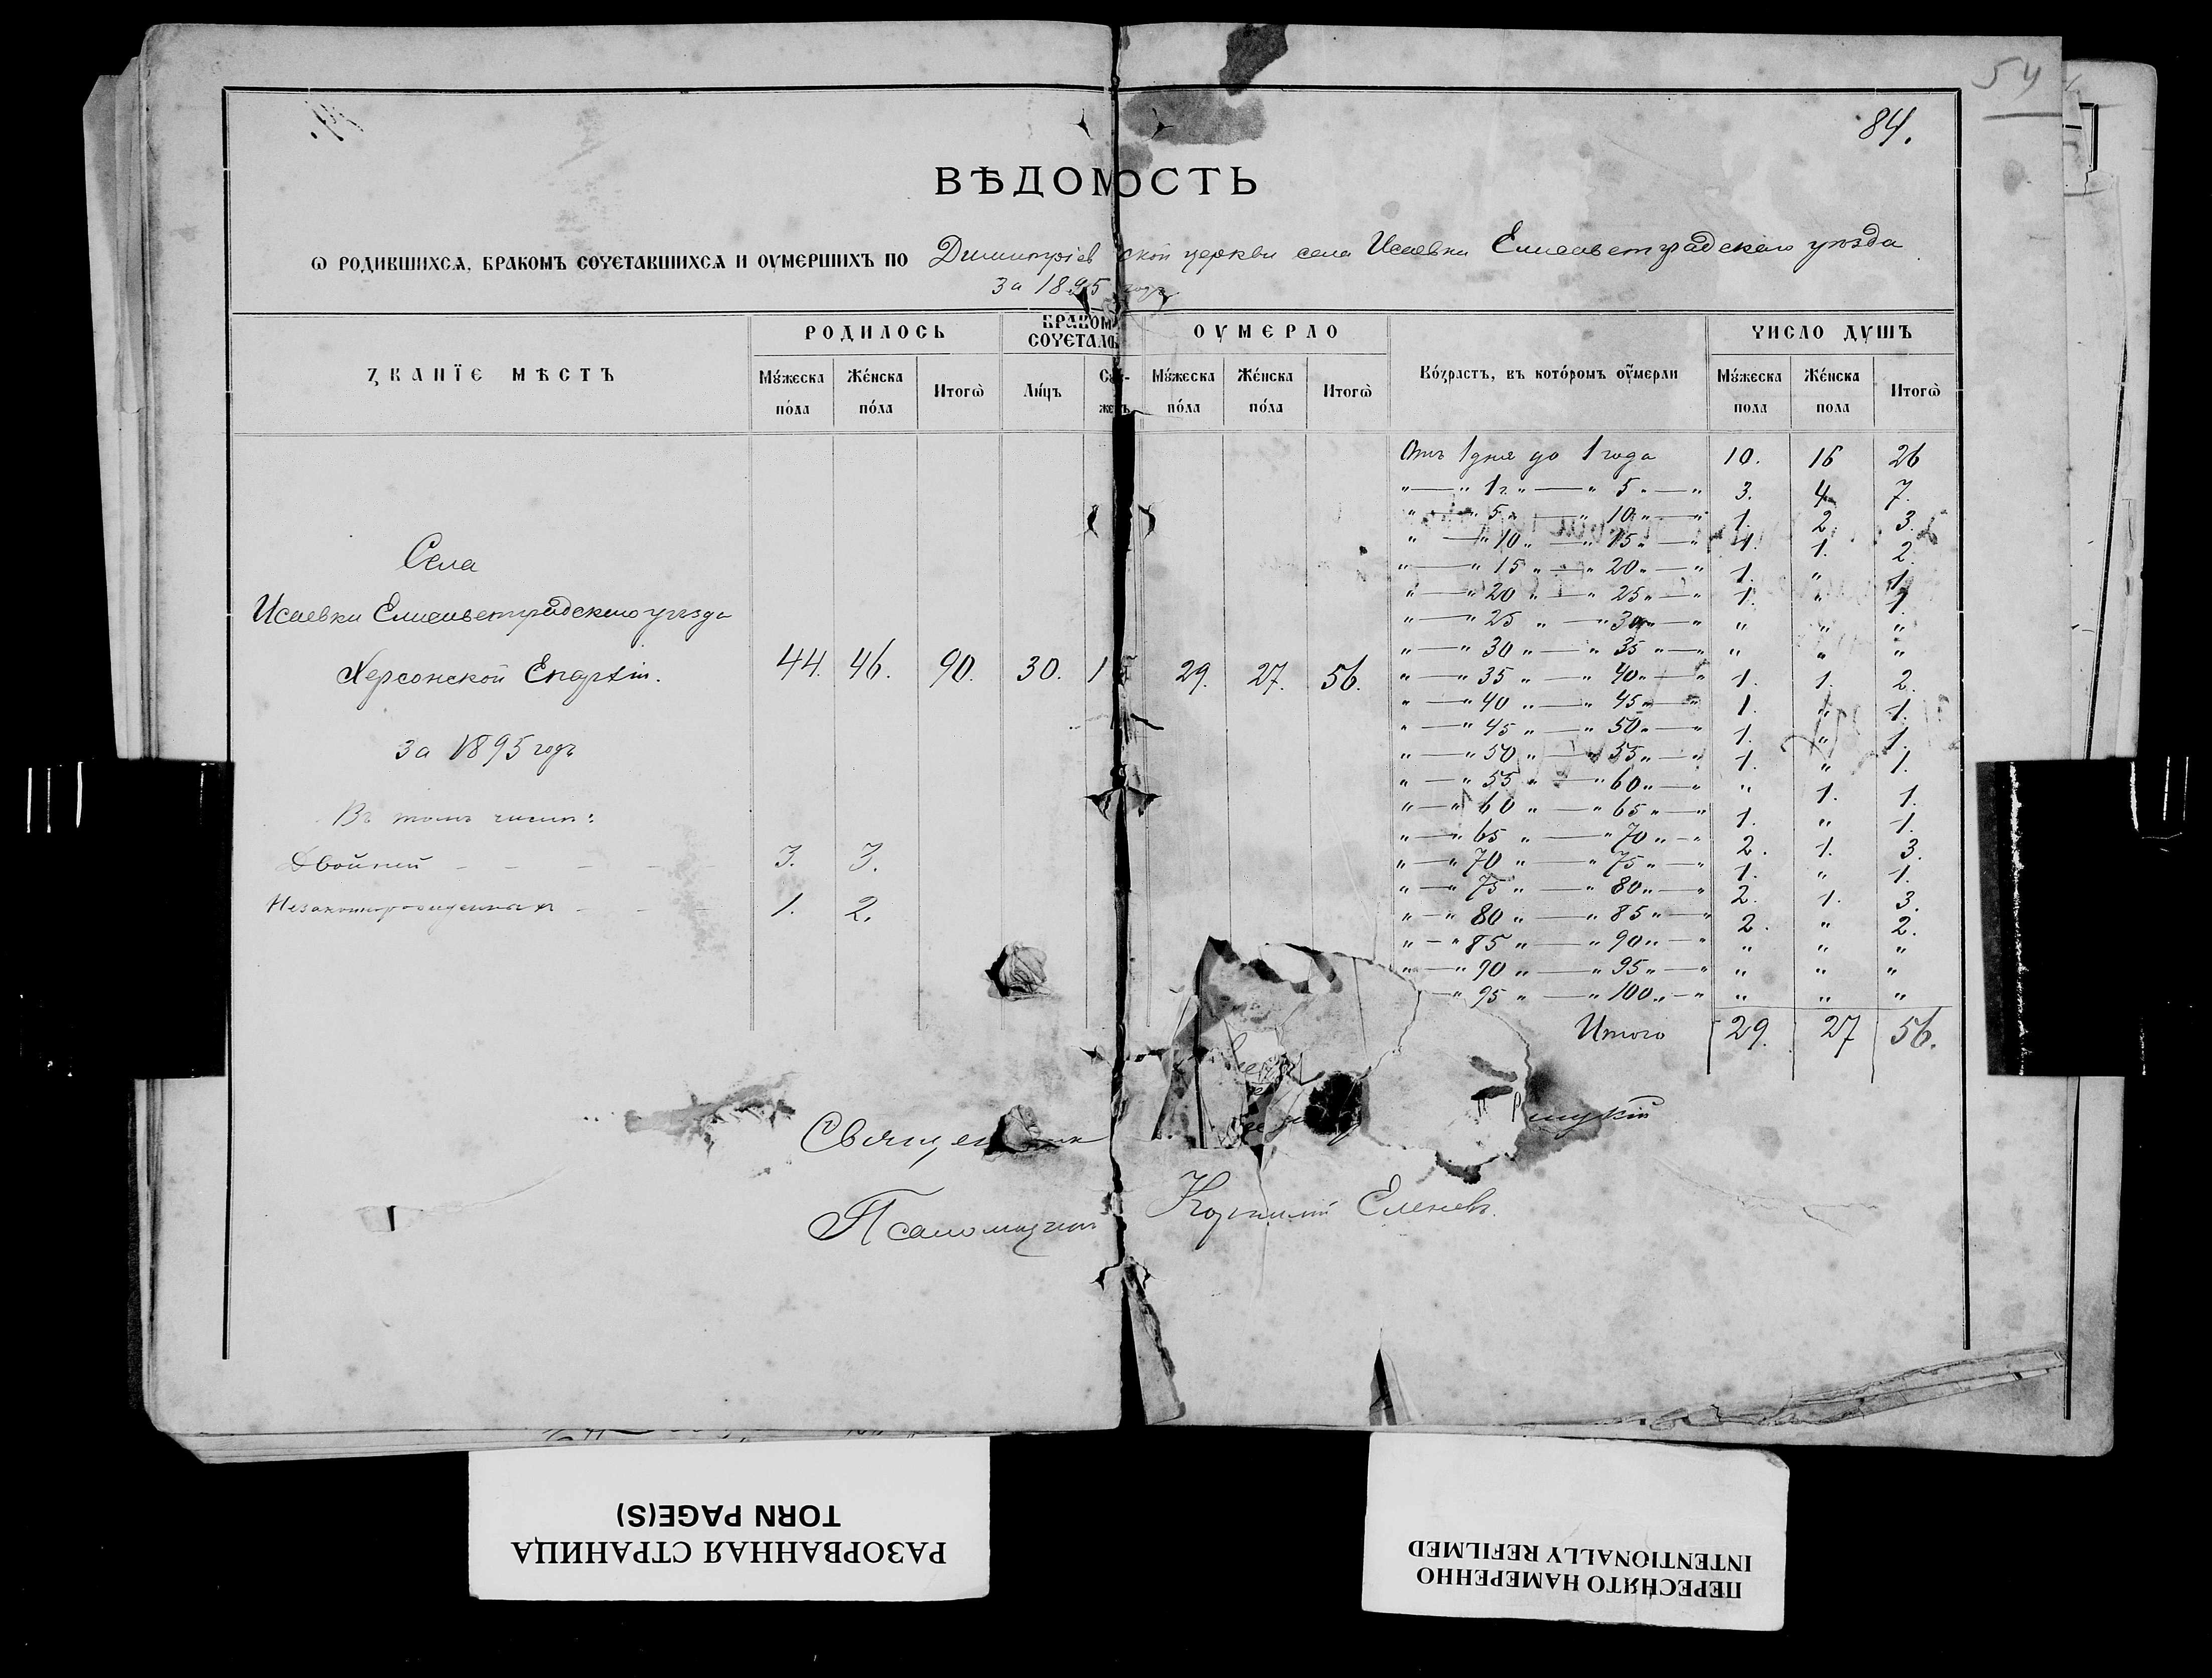 54
84.
ВѢДОМОСТЬ
Ѡ РОДИВШИХСѦ, БРАКОМЪ СОЧЕТАВШИХСѦ И ОУМЕРШИХЪ ПО Димитріевской церкви села Исаевки Елисаветградскаго уѣзда
за 1895 годъ
ЗВАНЇЕ МѢСТЪ РОДИЛОСЬ БРАКОМ СОЧЕТАЛОС ОУМЕРЛО Во́зрастъ, въ кото́ромъ оу҆́мерли ЧИСЛО ДУШЪ
Му́жеска по́ла Же́нска по́ла Итогѡ̀ Ли́цъ Му́жеска по́ла Же́нска по́ла Итогѡ̀ Му́жеска пола Же́нска пола Итогѡ̀
Отъ 1 дня до 1 года 10. 16 26
" — " 1 г. " — " 5 " — " 3. 4 7.
" — " 5 " — " 10 " — " 1. 2 3.
" — " 10 " — " 15 " — " 1. 1. 2.
" — " 15 " — " 20 " — " 1. " 1.
" — " 20 " — " 25 " — " 1. " 1.
" — " 25 " — " 30 " — " " " "
" — " 30 " — " 35 " — " " " "
" — " 35 " — " 40 " — " 1. 1. 2.
" — " 40 " — " 45 " — " 1. " 1.
" — " 45 " — " 50 " — " 1. " 1.
" — " 50 " — " 55 " — " 1. " 1.
" — " 55 " — " 60 " — " " 1. 1.
" — " 60 " — " 65 " — " 1. " 1.
" — " 65 " — " 70 " — " 2. 1. 3.
" — " 70 " — " 75 " — " 1. " 1.
" — " 75 " — " 80 " — " 2. 1. 3.
" — " 80 " — " 85 " — " 2. " 2.
" — " 85 " — " 90 " — " " " "
" — " 90 " — " 95 " — " " " "
— " 95 " — " 100 " — " " " "
Итого 29. 27 56.
Села
Исаевки Елисаветградскаго уѣзда
Херсонской Епархіи. 44. 46. 90. 30. 15 29. 27. 56.
за 1895 годъ
Въ томъ числѣ:
Двойней - - - - - 3. 3.
Незаконнорожденныхъ - - - 1. 2.
Священникъ
Псаломщикъ Корнилій Еленевъ.
РАЗОРВАННАЯ СТРАНИЦА
TORN PAGE(S)
ПЕРЕСНЯТО НАМЕРЕННО
INTENTIONALLY REFILMED